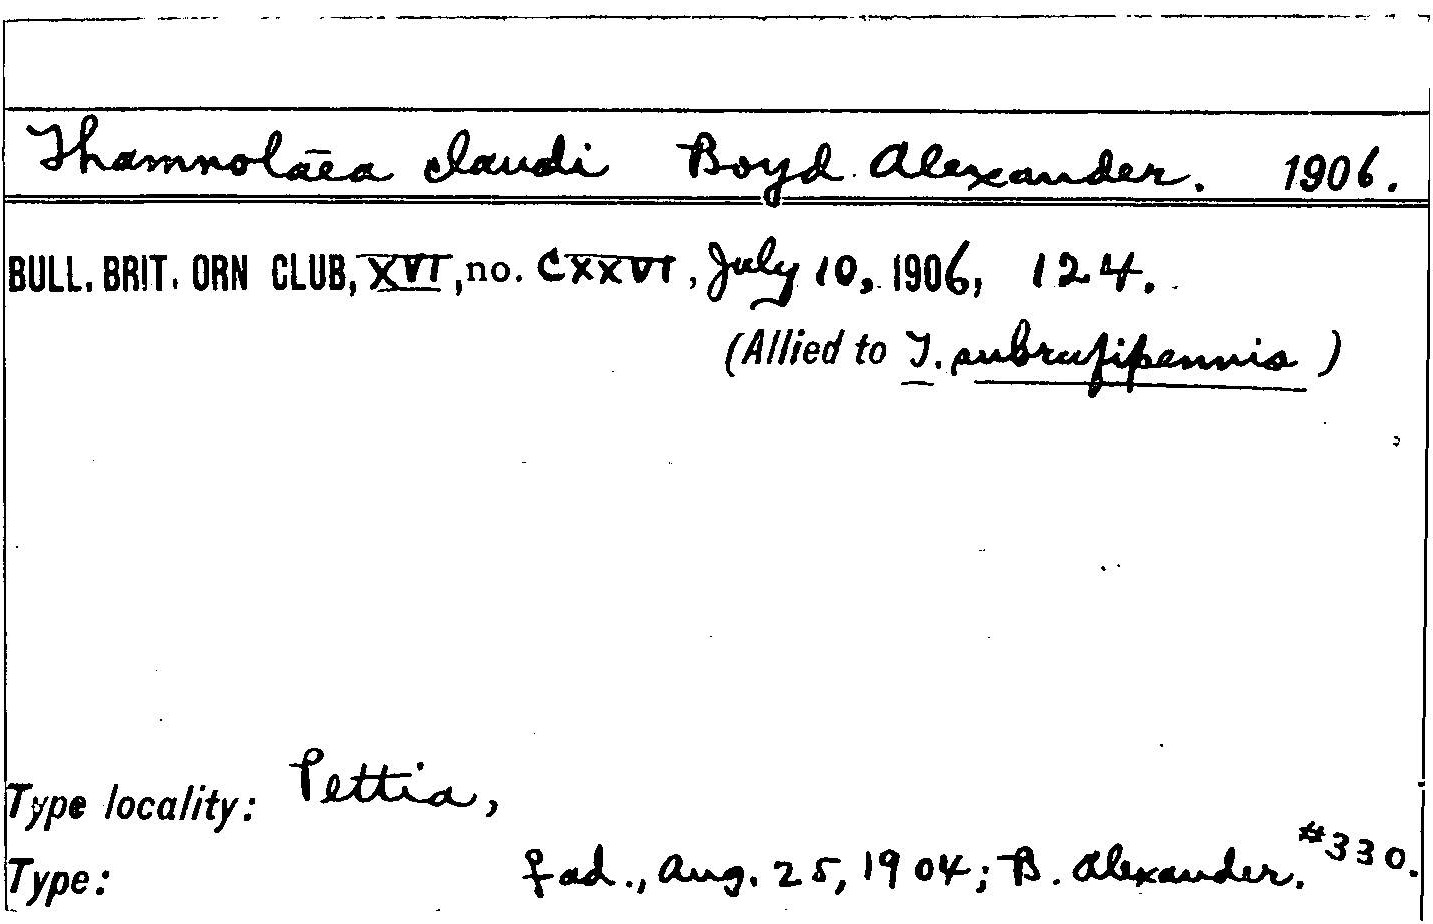 Thamnolāea claudi Boyd Alexander. 1906.
BULL. BRIT. ORN CLUB, XVI, no. CXXVI, July 10, 1906, 124.
(Allied to T. subrufipennis)
Type locality: Pettia,
Type: ♀ ad., Aug. 25, 1904; B. Alexander. #330.